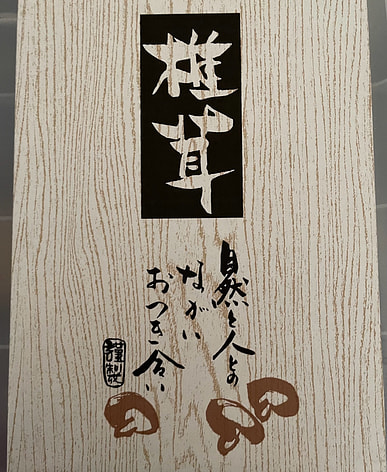 椎茸
自然と人との
ながい
おつき合い
謹製